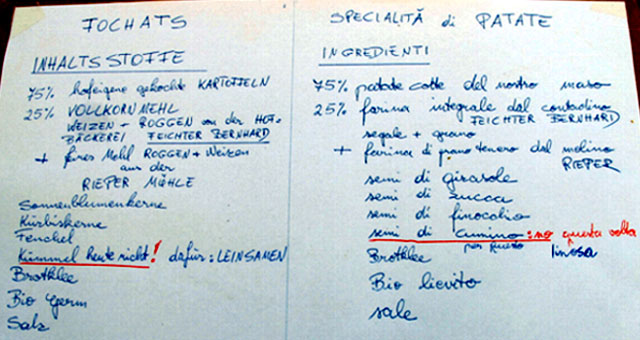 FOCHATS
INHALTSSTOFFE
75% hofeigene gekochte KARTOFFELN
25% VOLLKORNMEHL
WEIZEN - ROGGEN von der HOF-
BÄCKEREI FEICHTER BERNHARD
+ feines Mehl ROGGEN + Weizen
aus der
RIEPER MÜHLE
Sonnenblumenkerne
Kürbiskerne
Fenchel
Kümmel heute nicht! dafür: LEINSAMEN
Brotklee
Bio Germ
Salz
SPECIALITÀ di PATATE
INGREDIENTI
75% patate cotte del nostro maso
25% farina integrale dal contadino
FEICHTER BERNHARD
segale + grano
+ farina di grano tenero dal molino
RIEPER
semi di girasole
semi di zucca
semi di finocchio
semi di cumino: no questa volta
per questo linosa
Brotklee
Bio lievito
sale